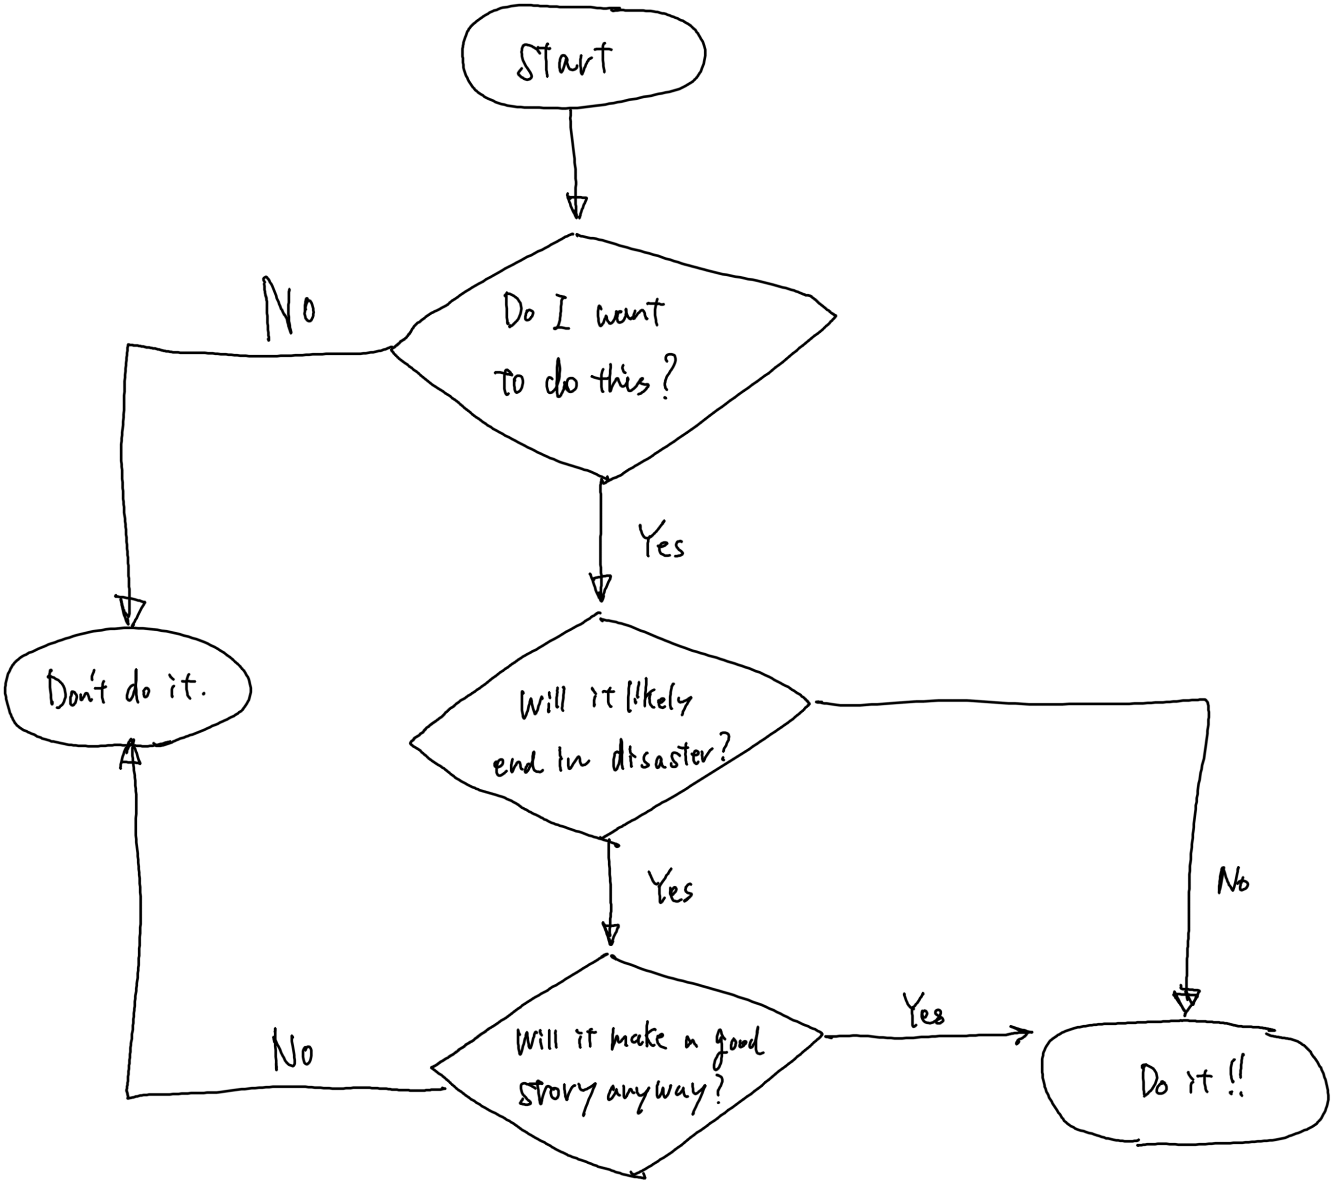 Start
No
Do I want
to do this?
Yes
Don't do it.
Will it likely
end in disaster?
No
Yes
Yes
Will it make a good
story anyway?
No
Do it!!